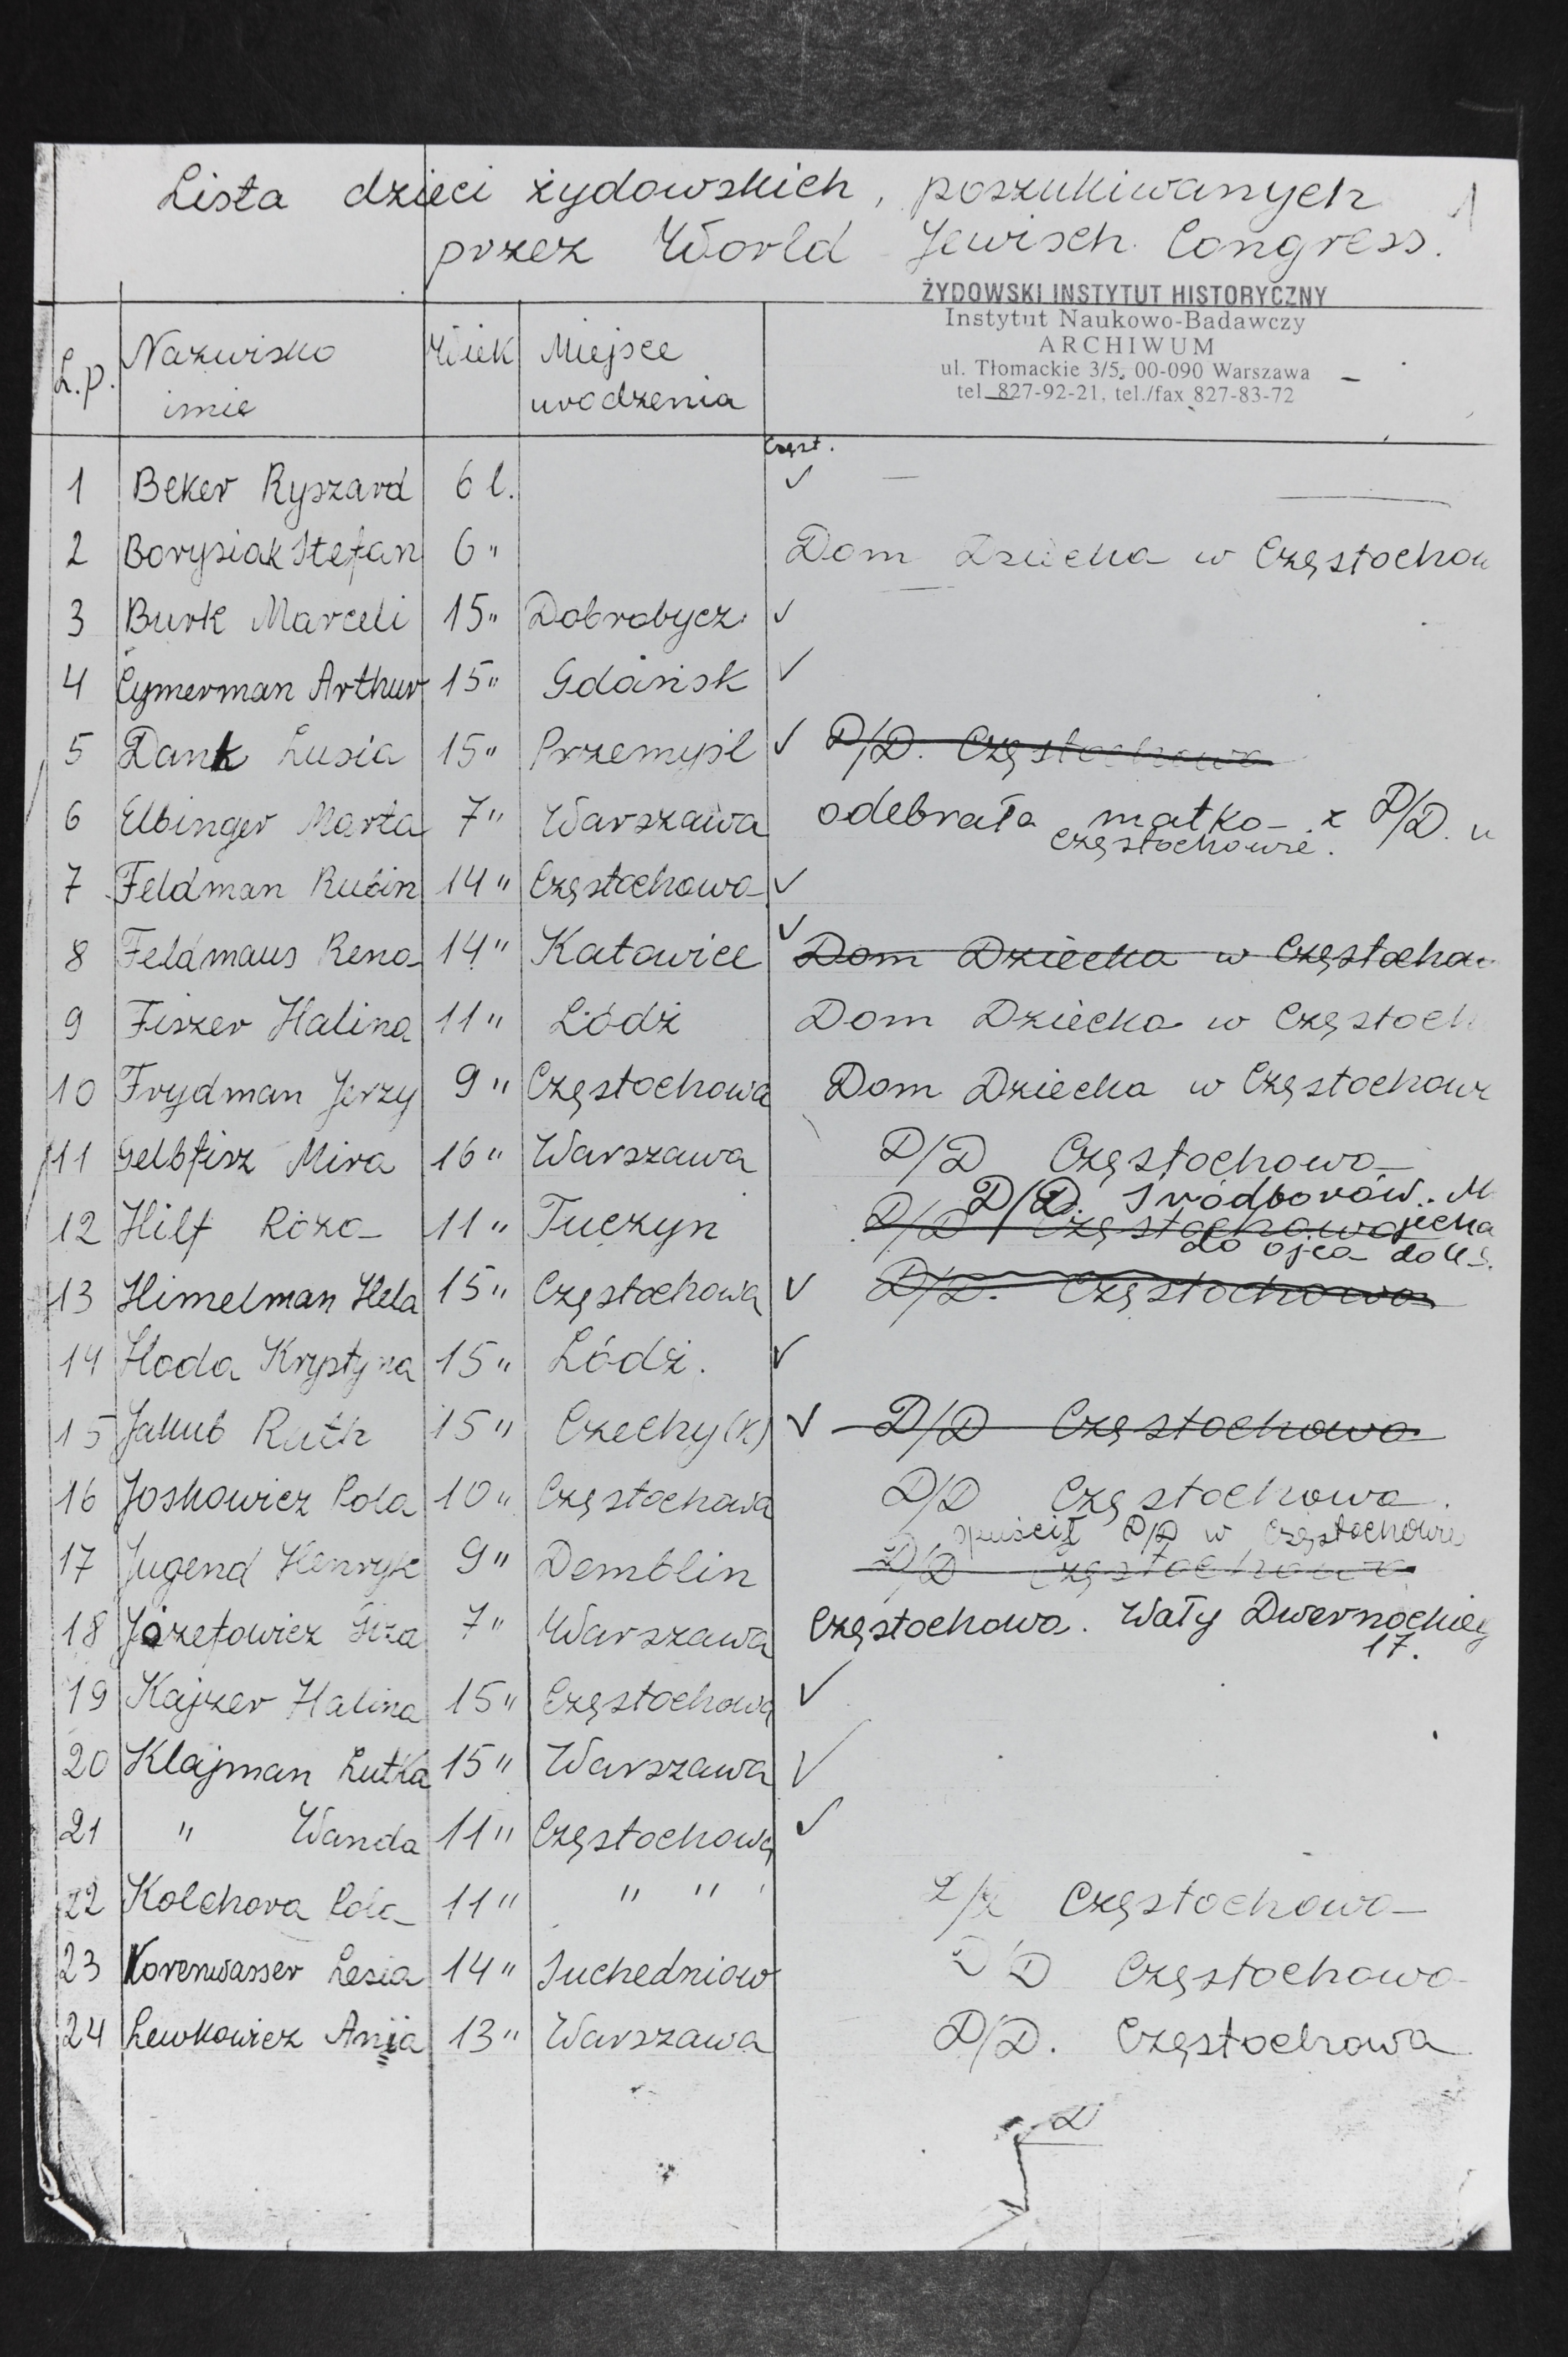 Lista dzieci żydowskich, poszukiwanych 1
przez World Jewisch Congress.
ŻYDOWSKI INSTYTUT HISTORYCZNY
Instytut Naukowo-Badawczy
ARCHIWUM
ul. Tłomackie 3/5, 00-090 Warszawa
tel. 827-92-21, tel./fax 827-83-72
L.p. Nazwisko imię Wiek Miejsce urodzenia
Częst.
1 Beker Ryszard 6 l. ✓ —
2 Borysiak Stefan 6 " Dom Dziecka w Częstochow
3 Burk Marceli 15 " Dobrobycz ✓
4 Cymerman Arthur 15 " Gdańsk ✓
5 Dank Lusia 15 " Przemyśl ✓ D/D. Częstochowa
6 Elbinger Marta 7 " Warszawa odebrała matka z D/D. w
Częstochowie.
7 Feldman Rubin 14 " Częstochowa ✓
8 Feldmaus Rena 14 " Katowice ✓ Dom Dziecka w Częstochow
9 Fiszer Halina 11 " Łódź Dom Dziecka w Częstoch
10 Frydman Jerzy 9 " Częstochowa Dom Dziecka w Częstochow
11 Gelbfisz Mira 16 " Warszawa D/D Częstochowa
D/D. Śródborów.
12 Hilf Róża 11 " Tuczyn D/D Częstochowa
do ojca do
13 Himelman Hela 15 " Częstochowa ✓ D/D. Częstochowa
14 Hoda Krystyna 15 " Łódź. ✓
15 Jakub Ruth 15 " Czechy (K) ✓ D/D Częstochowa
16 Joskowicz Pola 10 " Częstochowa D/D Częstochowa.
opuścił D/D w Częstochowie
17 Jugend Henryk 9 " Demblin D/D Częstochowa
18 Józefowicz 7 " Warszawa Częstochowa. Wały Dwernackieg
17.
19 Kajzer Halina 15 " Częstochowa ✓
20 Klajman Lutka 15 " Warszawa ✓
21 " Wanda 11 " Częstochowa ✓
22 Kolchora Pola 11 " " " Częstochowa
23 Korenwasser Lesia 14 " Suchedniow D/D Częstochowa
24 Lewkowicz Anja 13 " Warszawa D/D. Częstochowa